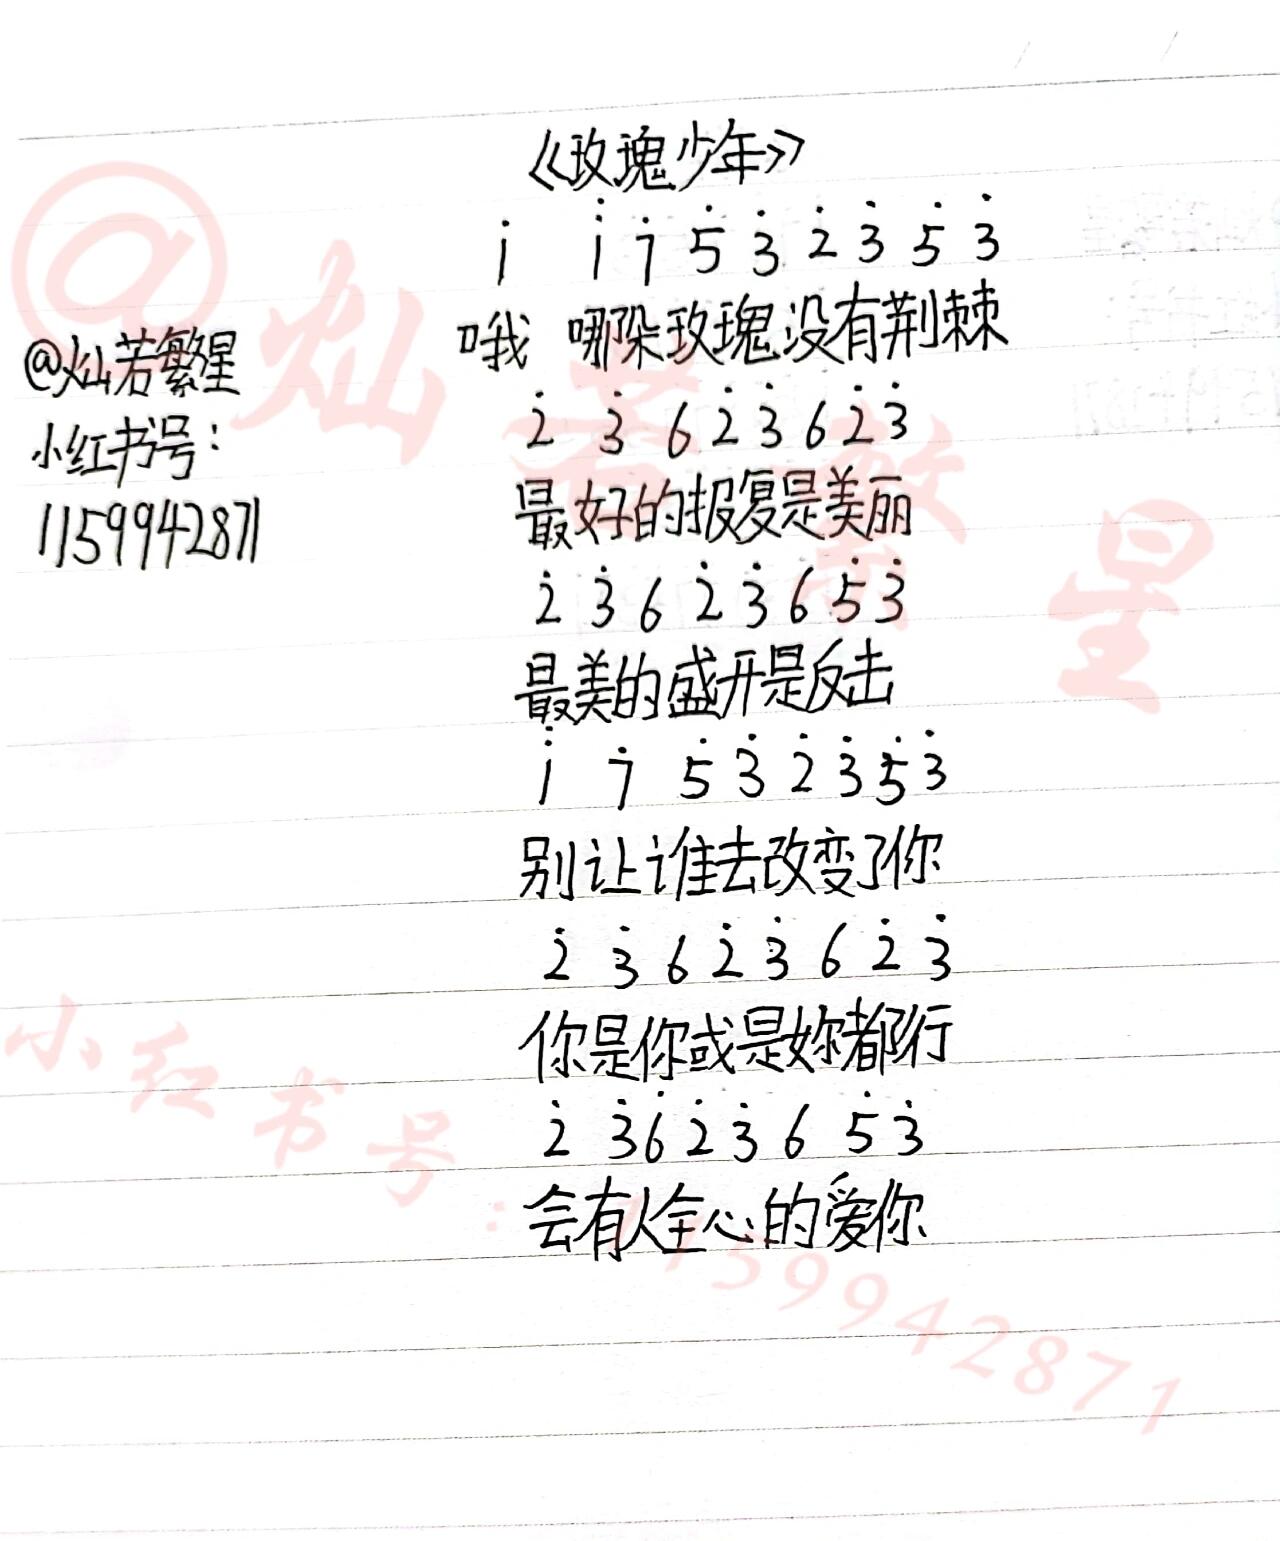 《玫瑰少年》
i̇ i̇̇ 7̇ 5̇ 3̇ 2̇ 3̇ 5̇ 3̇
哦 哪朵玫瑰没有荆棘
2̇ 3̇ 6 2̇ 3̇ 6 2̇ 3̇
最好的报复是美丽
2̇ 3̇ 6 2̇ 3̇ 6 5̇ 3̇
最美的盛开是反击
i̇̇ 7̇ 5̇ 3̇ 2̇ 3̇ 5̇ 3̇
别让谁去改变了你
2̇ 3̇ 6 2̇ 3̇ 6 2̇ 3̇
你是你或是妳都行
2̇ 3̇ 6̇ 2̇ 3̇ 6 5̇ 3̇
会有人全心的爱你
@灿若繁星
小红书号:
1159942871
@灿若繁星
小红书号:1159942871